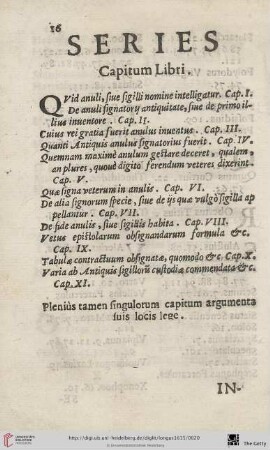 16
SERIES
Capitum Libri.
QVid anuli, siue sigilli nomine intelligatur. Cap. I.
De anuli signatorij antiquitate, siue de primo il-
lius inuentore. Cap. II.
Cuius rei gratia fuerit anulus inuentus. Cap. III.
Quanti Antiquis anulus signatorius fuerit. Cap. IV.
Quemnam maximè anulum gestare deceret, qualem
an plures, quoue digito ferendum veteres dixerint.
Cap. V.
Quæ signa veterum in anulis. Cap. VI.
De alia signorum specie, siue de ijs quæ vulgò sigilla ap
pellantur. Cap. VII.
De fide anulis, siue sigillis habita. Cap. VIII.
Vetus epistolarum obsignandarum formula &c.
Cap. IX.
Tabulæ contractuum obsignatæ, quomodo &c. Cap. X.
Varia ab Antiquis sigillorũ custodiæ commendata &c.
Cap. XI.
Pleniùs tamen singulorum capitum argumenta
suis locis lege.
IN-
UNIVERSITÄTS-
BIBLIOTHEK
HEIDELBERG
http://digi.ub.uni-heidelberg.de/diglit/longus1615/0020
© Universitätsbibliothek Heidelberg
The Getty